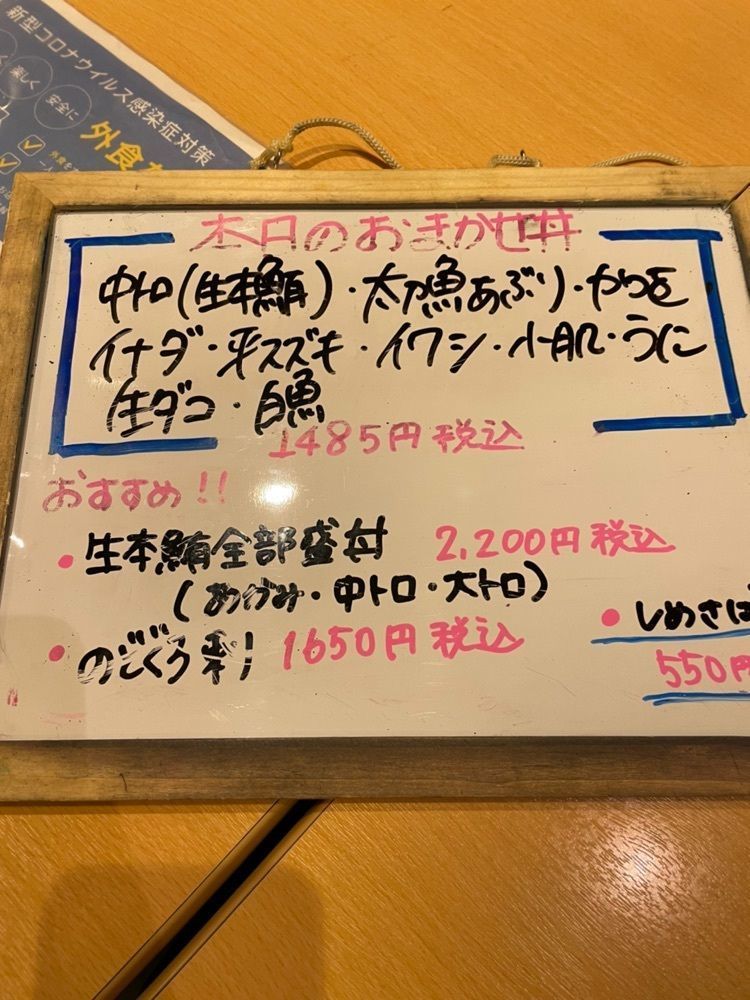 新型コロナウイルス感染症対策
楽しく
安全に
外食
本日のおまかせ丼
中トロ(生本鮪)・太刀魚あぶり・やりを
イナダ・平スズキ・イワシ・小肌・うに
生ダコ・白魚
1485円税込
おすすめ!!
・生本鮪全部盛丼 2,200円税込
(あかみ・中トロ・大トロ)
・のどぐろ刺 1650円税込
・しめさば
550円